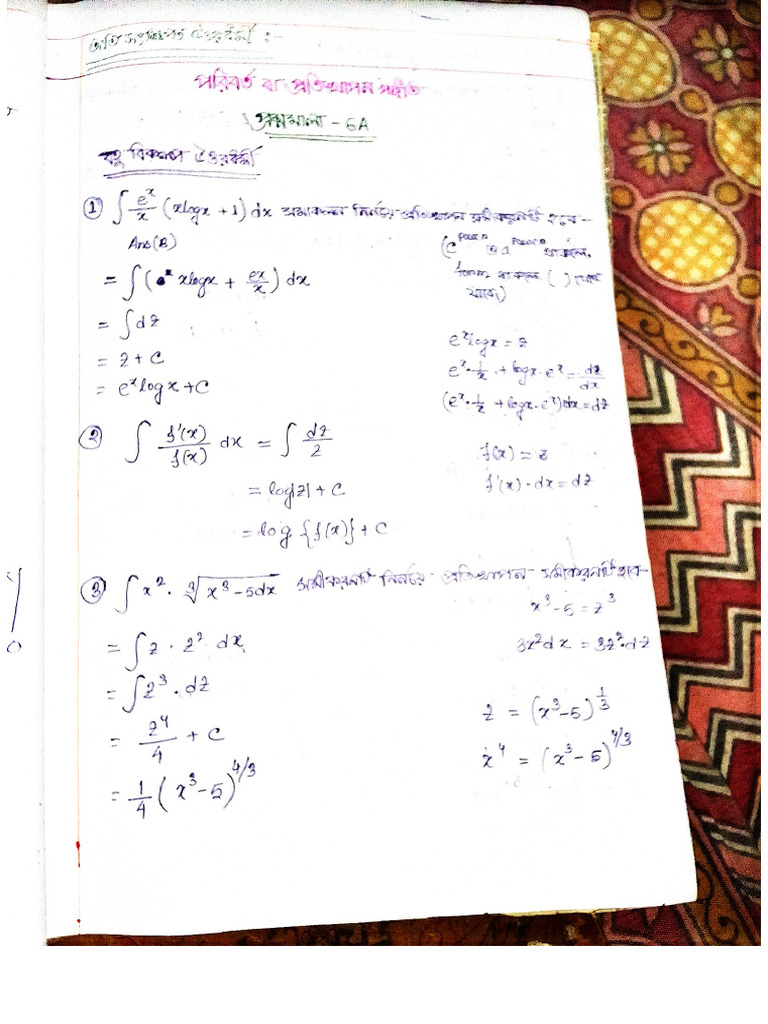 অতি সংক্ষিপ্ত উত্তরধর্মী :-
পরিবর্ত বা প্রতিস্থাপন পদ্ধতি
প্রশ্নমালা - 6A
বহু বিকল্প উত্তরধর্মী
① ∫ e^x/x (xlogx + 1) dx সমাকলন নির্ণয়ে প্রতিস্থাপন সমীকরণটি হবে -
Ans (B)
= ∫ (e^x xlogx + ex/x) dx
= ∫ dz
= z + c
= e^x log x + c
(e^power
থাকলে,
form থাকলে ( )
যাবে)
e^x logx = z
e^x · 1/x + logx · e^x = dz/dx
(e^x · 1/x + logx · e^x) dx = dz
② ∫ f'(x)/f(x) dx = ∫ dz/z
= log|z| + c
= log {f(x)} + c
f(x) = z
f'(x) · dx = dz
③ ∫ x² · ∛(x³ - 5dx) সমীকরণটি নির্ণয়ে প্রতিস্থাপন সমীকরণটি হবে -
= ∫ z · z² dx
= ∫ z³ · dz
= z⁴/4 + c
= 1/4 (x³ - 5)^4/3
x³ - 5 = z³
3x² dx = 3z² · dz
z = (x³ - 5)^1/3
x⁴ = (x³ - 5)^4/3